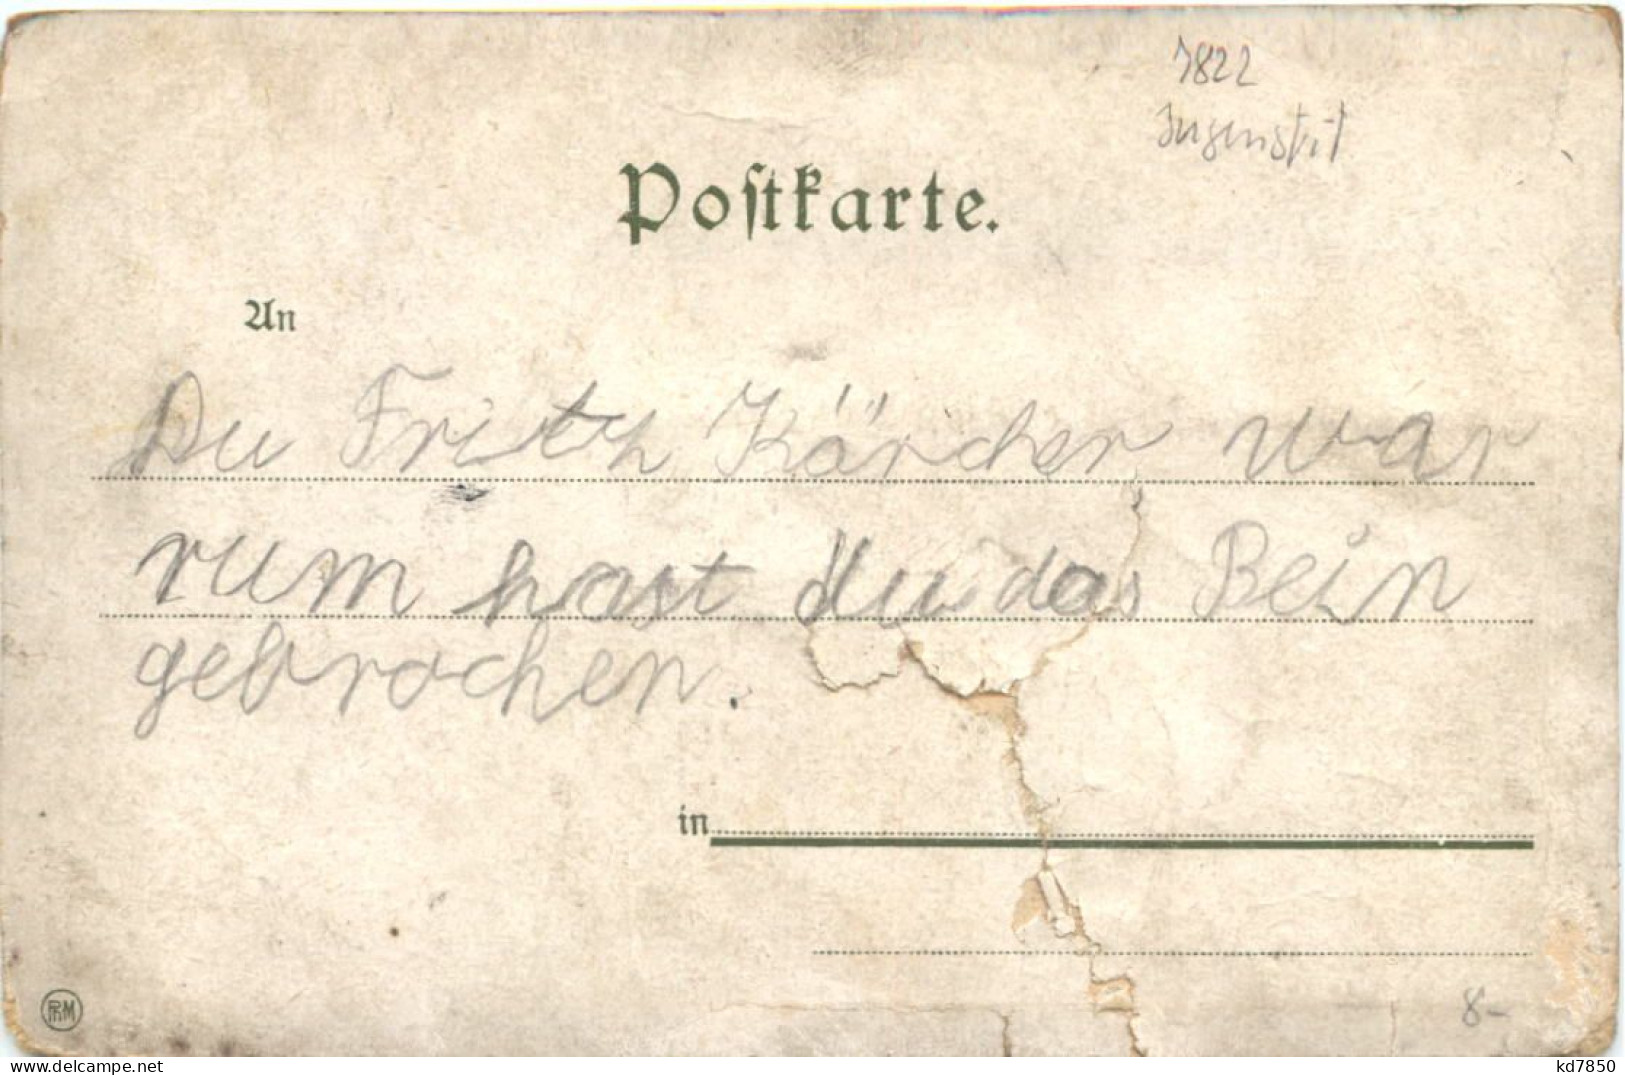 7822
Jugenstil
Postkarte.
An
Du Fritz Kärcher war
rum hast du das Bein
gebrochen.
in
8-
www.delcampe.net
kd7850